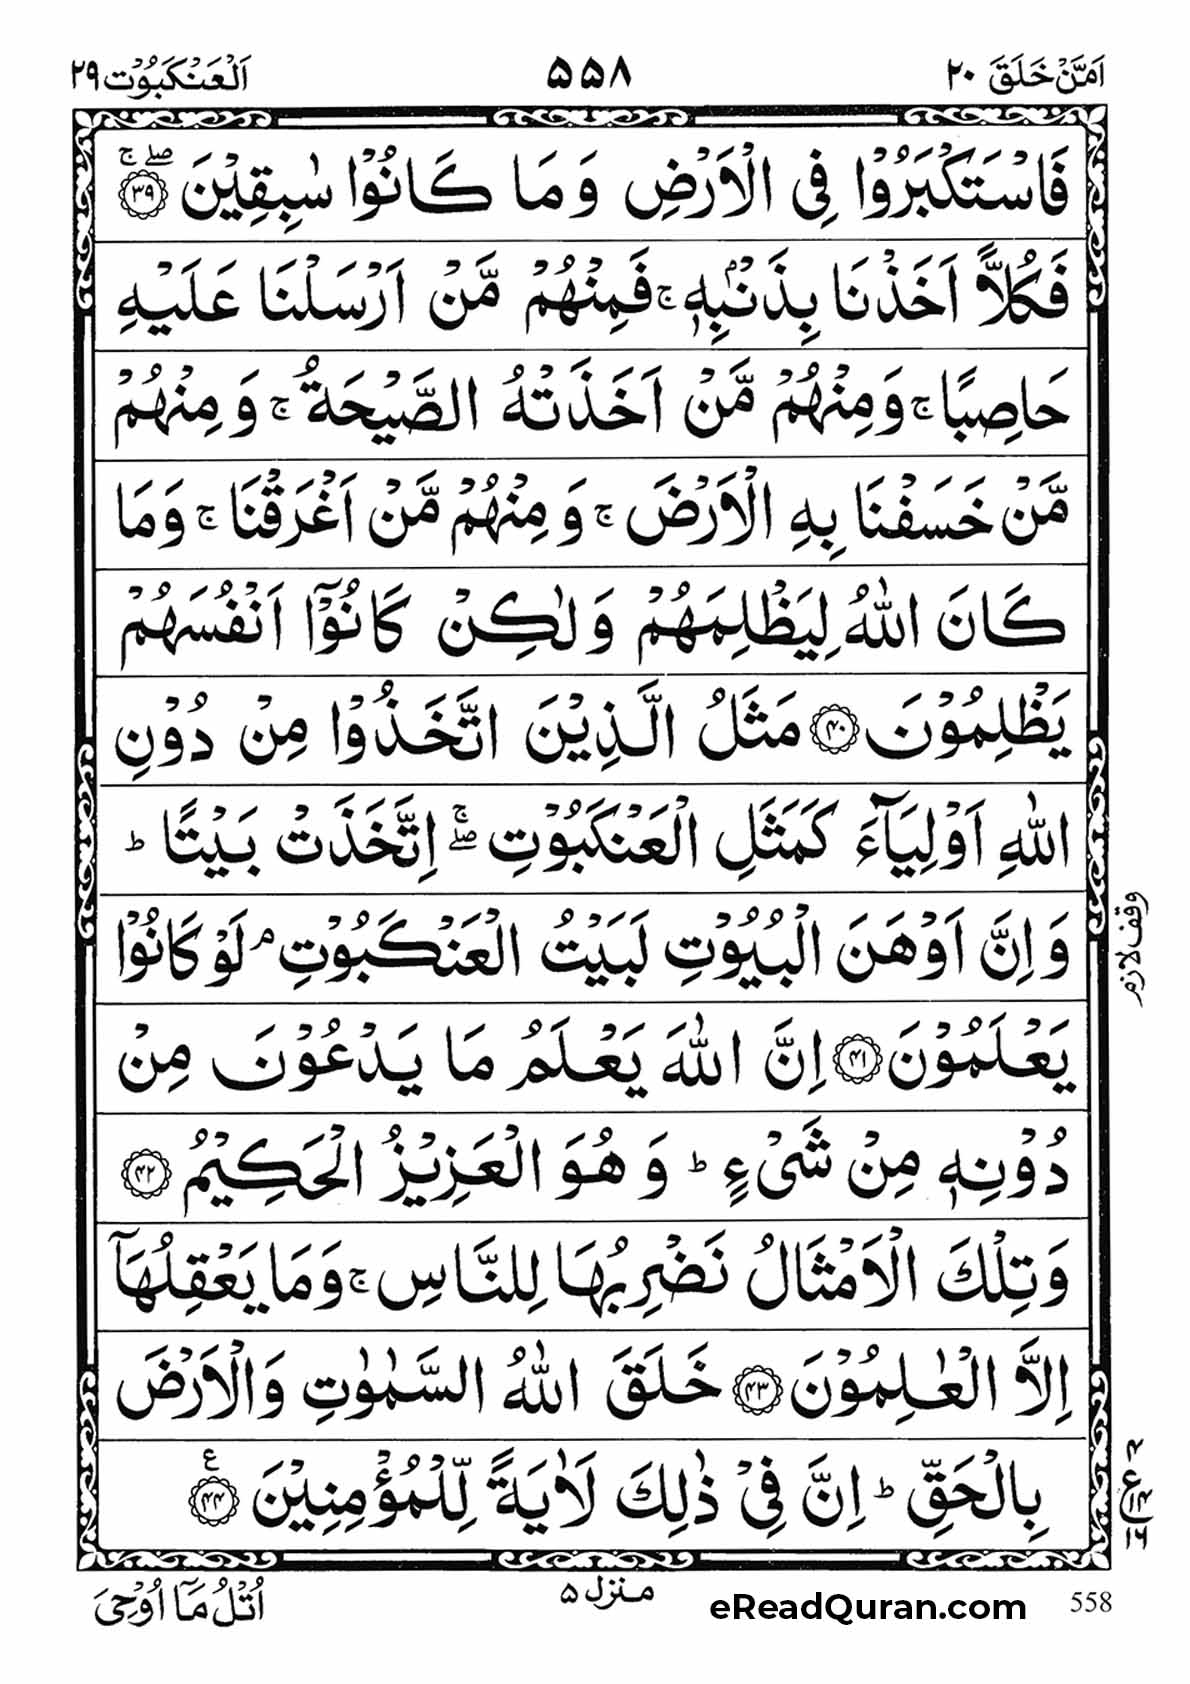 اَمَّنْ خَلَقَ ٢٠
٥٥٨
اَلْعَنْكَبُوْت ٢٩
فَاسْتَكْبَرُوْا فِى الْاَرْضِ وَمَا كَانُوْا سٰبِقِيْنَ ۖۚ ﴿٣٩﴾
فَكُلًّا اَخَذْنَا بِذَنْۢبِهٖ ۚ فَمِنْهُمْ مَّنْ اَرْسَلْنَا عَلَيْهِ
حَاصِبًا ۚ وَمِنْهُمْ مَّنْ اَخَذَتْهُ الصَّيْحَةُ ۚ وَمِنْهُمْ
مَّنْ خَسَفْنَا بِهِ الْاَرْضَ ۚ وَمِنْهُمْ مَّنْ اَغْرَقْنَا ۚ وَمَا
كَانَ اللّٰهُ لِيَظْلِمَهُمْ وَلٰكِنْ كَانُوْۤا اَنْفُسَهُمْ
يَظْلِمُوْنَ ﴿٤٠﴾ مَثَلُ الَّذِيْنَ اتَّخَذُوْا مِنْ دُوْنِ
اللّٰهِ اَوْلِيَآءَ كَمَثَلِ الْعَنْكَبُوْتِ ۖۚ اِتَّخَذَتْ بَيْتًا ؕ
وَاِنَّ اَوْهَنَ الْبُيُوْتِ لَبَيْتُ الْعَنْكَبُوْتِ ۘ لَوْ كَانُوْا
وقف لازم
يَعْلَمُوْنَ ﴿٤١﴾ اِنَّ اللّٰهَ يَعْلَمُ مَا يَدْعُوْنَ مِنْ
دُوْنِهٖ مِنْ شَىْءٍ ؕ وَهُوَ الْعَزِيْزُ الْحَكِيْمُ ﴿٤٢﴾
وَتِلْكَ الْاَمْثَالُ نَضْرِبُهَا لِلنَّاسِ ۚ وَمَا يَعْقِلُهَاۤ
اِلَّا الْعٰلِمُوْنَ ﴿٤٣﴾ خَلَقَ اللّٰهُ السَّمٰوٰتِ وَالْاَرْضَ
بِالْحَقِّ ؕ اِنَّ فِىْ ذٰلِكَ لَاٰيَةً لِّلْمُؤْمِنِيْنَ ﴿٤٤﴾ ع
٤
ع ١٤
١٦
اُتْلُ مَاۤ اُوْحِىَ
منزل ٥
eReadQuran.com
558